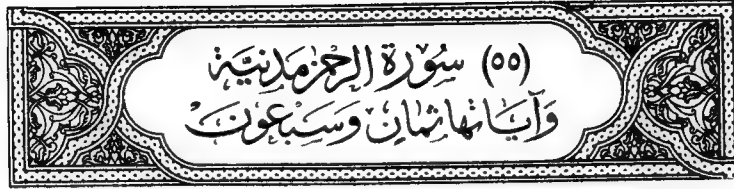 (٥٥) سُوْرَة الرَّحْمٰن مَدَنِيَّة
وَآيَاتُهَا ثَمَان وَسَبْعُونَ